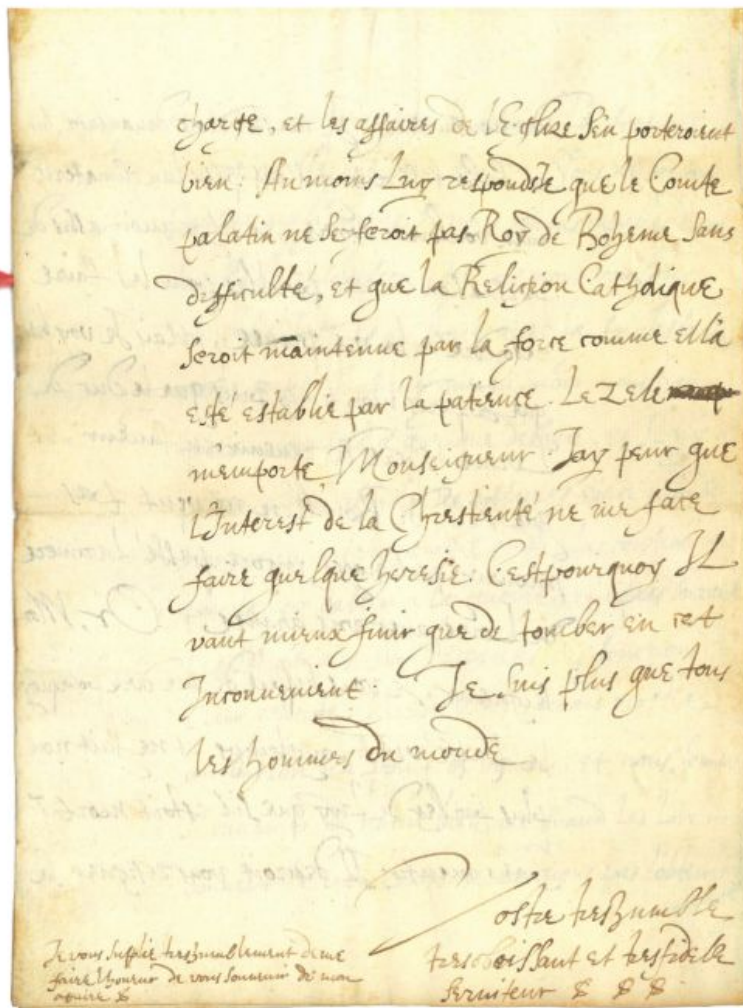 charge, et les affaires de l'Eglize s'en porteroient
bien. Au moins luy respondsie que le Comte
palatin ne se feroit pas Roy de Boheme sans
difficulte, et que la Religion Catholique
seroit maintenue par la force comme ell'a
esté establie par la patience. Le Zele
m'emporte, Monseigneur. J'ay peur que
l'Interest de la Chrestienté ne me face
faire quelque heresie. C'est pourquoy Il
vaut mieux finir que de tomber en cet
Inconvenient. Je suis plus que tous
les hommes du monde
Vostre treshumble
tresobeissant et tresfidelle
serviteur
Je vous suplie treshumblement de me
faire l'honneur de vous souvenir de mon